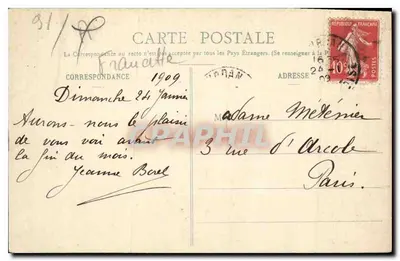 91/
CARTE POSTALE
La Correspondance au recto n'est pas acceptée par tous les Pays Étrangers. (Se renseigner à la
CORRESPONDANCE
ADRESSE
RÉPUBLIQUE FRANÇAISE
10
1909
Dimanche 24 Janvier
Aurons-nous le plaisir
de vous voir avant
la fin du mois.
Jeanne Borel
Madame Méténier
3 rue d'Arcole
Paris.